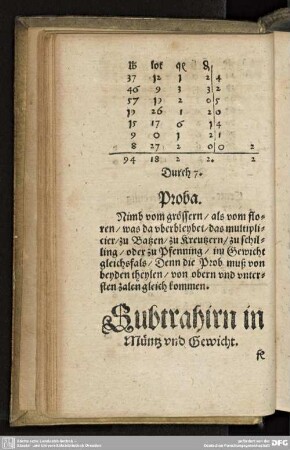 ℔ lot qr ₰
37 12 1 2 4
46 9 3 3 2
57 19 2 0 5
19 26 1 2 0
15 17 6 1 4
9 0 1 2 1
8 27 2 0 0 2
94 18 2 2. 2
Durch 7.
Proba.
Nimb vom grössern / als vom flo-
ren / was da vberbleybet / das multipli-
cier / zu Batzen / zu Kreutzern / zu schil-
ling / oder zu Pfenning / im Gewicht
gleichsfals / Denn die Prob muß von
beyden theylen / von obern vnd vnter-
sten zalen gleich kommen.
Subtrahirn in
Müntz vnd Gewicht.